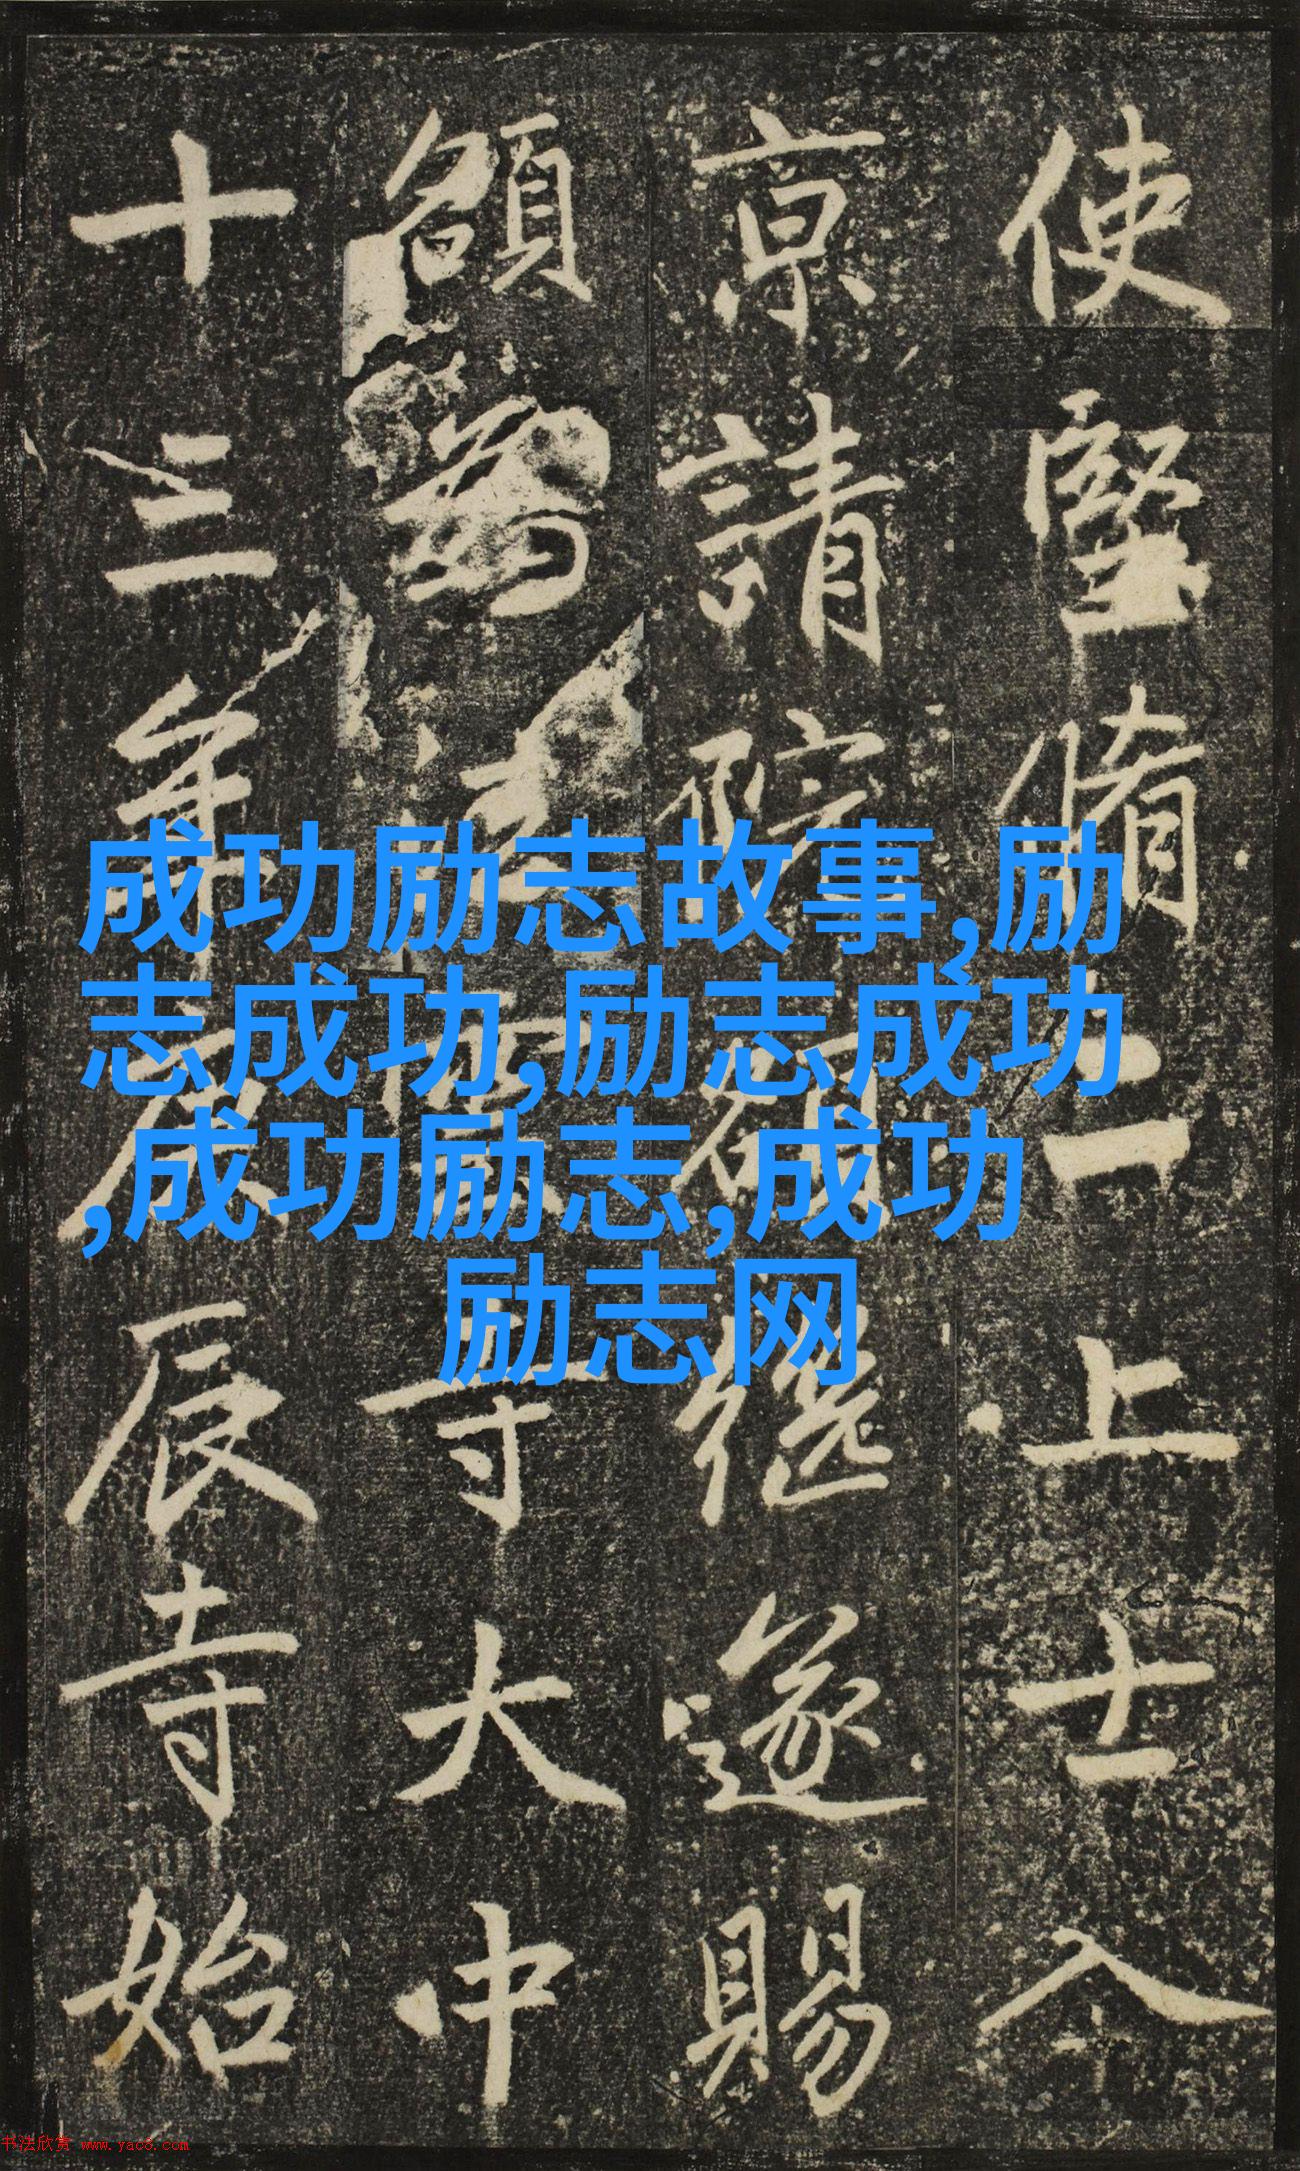 使堅脩二上士入
京請院額繼遂賜
額為法雲寺大中
十三年庚辰寺始
成功励志故事,励
志成功,励志成功
,成功励志,成功
励志网
书法欣赏 www.yac8.com